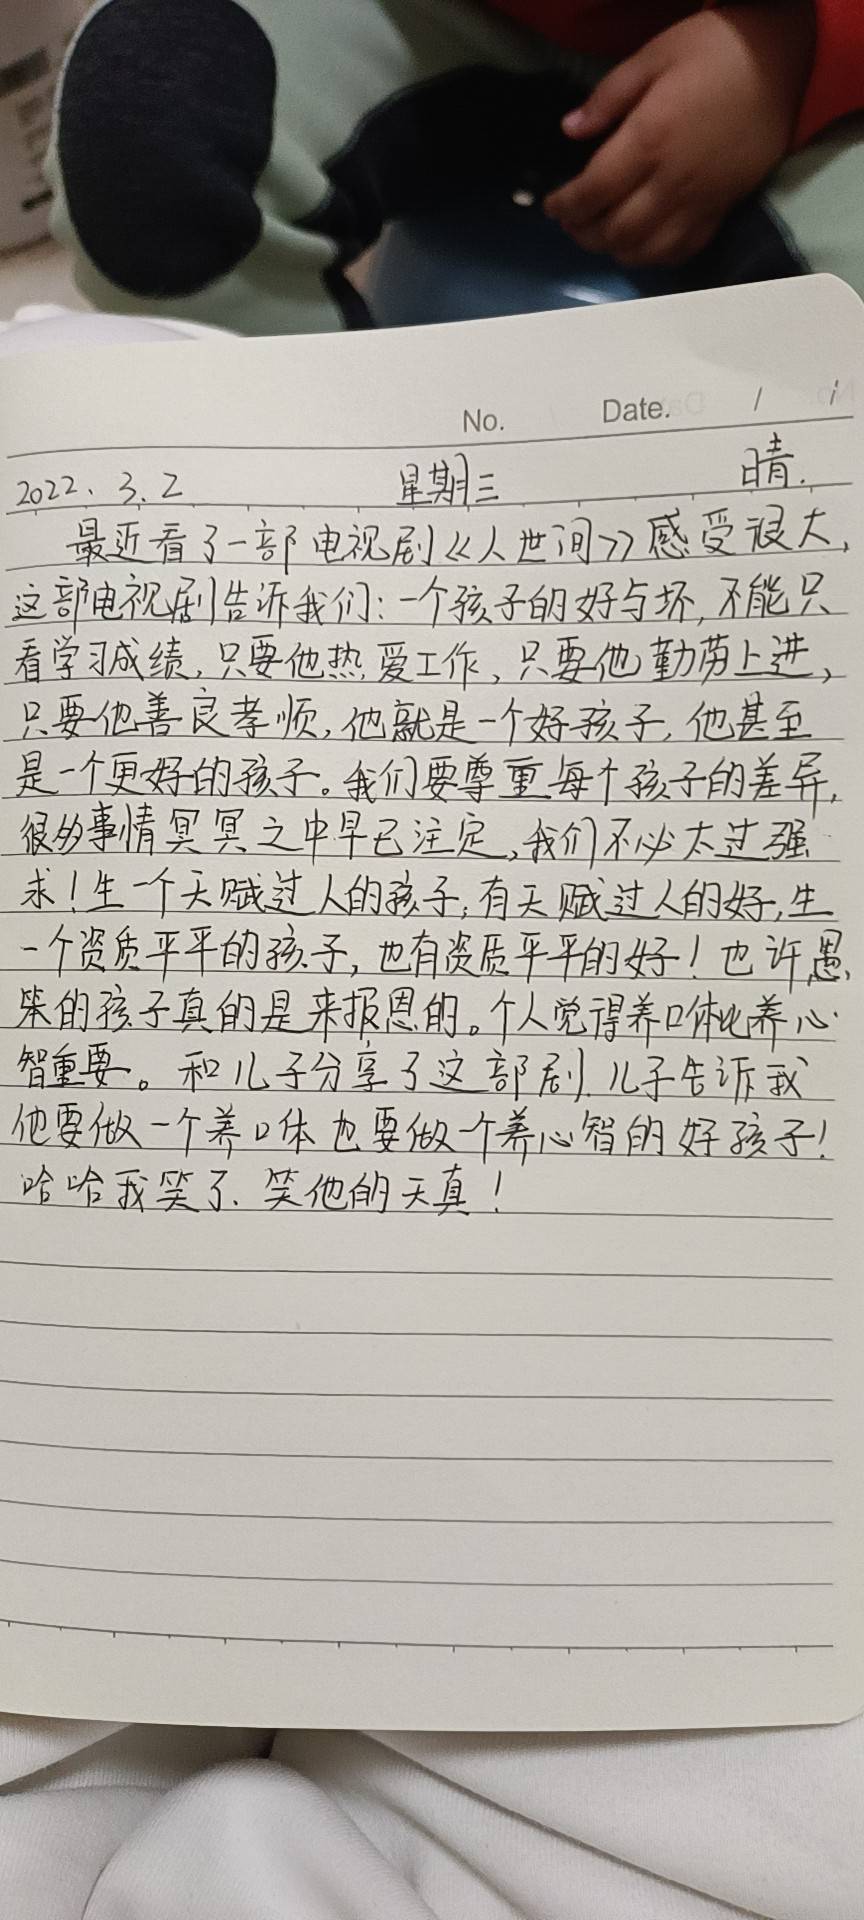 No. Date. / /
2022. 3. 2 星期三 晴.
最近看了一部电视剧《人世间》感受很大,
这部电视剧告诉我们:一个孩子的好与坏,不能只
看学习成绩,只要他热爱工作,只要他勤劳上进,
只要他善良孝顺,他就是一个好孩子,他甚至
是一个更好的孩子。我们要尊重每个孩子的差异,
很多事情冥冥之中早已注定,我们不必太过强
求!生一个天赋过人的孩子,有天赋过人的好,生
一个资质平平的孩子,也有资质平平的好!也许愚
笨的孩子真的是来报恩的。个人觉得养口体比养心
智重要。和儿子分享了这部剧.儿子告诉我
他要做一个养口体也要做一个养心智的好孩子!
哈哈我笑了.笑他的天真!